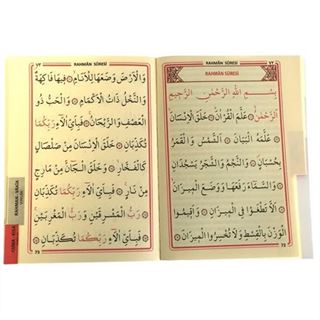 RAHMÂN SÛRESİ ٧٢
RAHMÂN SÛRESİ
بِسْمِ اللهِ الرَّحْمٰنِ الرَّحِيمِ
اَلرَّحْمٰنُ ۝ عَلَّمَ الْقُرْاٰنَ ۝ خَلَقَ الْاِنْسَانَ ۝
عَلَّمَهُ الْبَيَانَ ۝ اَلشَّمْسُ وَالْقَمَرُ
بِحُسْبَانٍ ۝ وَالنَّجْمُ وَالشَّجَرُ يَسْجُدَانِ
وَالسَّمَٓاءَ رَفَعَهَا وَوَضَعَ الْمِيزَانَ ۝
اَلَّا تَطْغَوْا فِي الْمِيزَانِ ۝ وَاَقِيمُوا
الْوَزْنَ بِالْقِسْطِ وَلَا تُخْسِرُوا الْمِيزَانَ
72
٧٣ RAHMÂN SÛRESİ
وَالْاَرْضَ وَضَعَهَا لِلْاَنَامِ ۝ فِيهَا فَاكِهَةٌ
وَالنَّخْلُ ذَاتُ الْاَكْمَامِ ۝ وَالْحَبُّ ذُو
الْعَصْفِ وَالرَّيْحَانُ ۝ فَبِاَيِّ اٰلَٓاءِ رَبِّكُمَا
تُكَذِّبَانِ ۝ خَلَقَ الْاِنْسَانَ مِنْ صَلْصَالٍ
كَالْفَخَّارِ ۝ وَخَلَقَ الْجَٓانَّ مِنْ مَارِجٍ
مِنْ نَارٍ ۝ فَبِاَيِّ اٰلَٓاءِ رَبِّكُمَا تُكَذِّبَانِ
رَبُّ الْمَشْرِقَيْنِ وَرَبُّ الْمَغْرِبَيْنِ ۝
فَبِاَيِّ اٰلَٓاءِ رَبِّكُمَا تُكَذِّبَانِ
73
RAHMAN - VAKIA